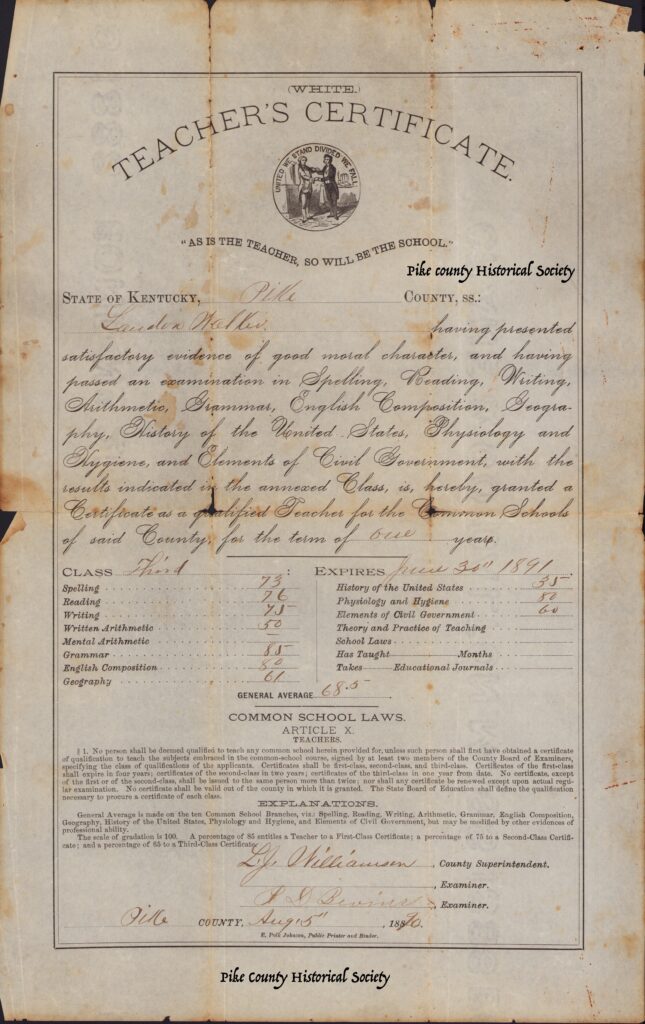 (WHITE.)
TEACHER'S CERTIFICATE.
UNITED WE STAND DIVIDED WE FALL
"AS IS THE TEACHER, SO WILL BE THE SCHOOL."
Pike county Historical Society
STATE OF KENTUCKY, Pike COUNTY, SS.:
Landon Walker having presented
satisfactory evidence of good moral character, and having
passed an examination in Spelling, Reading, Writing,
Arithmetic, Grammar, English Composition, Geogra-
phy, History of the United States, Physiology and
Hygiene, and Elements of Civil Government, with the
results indicated in the annexed Class, is, hereby, granted a
Certificate as a qualified Teacher for the Common Schools
of said County, for the term of one years.
CLASS Third : EXPIRES June 30" 1891.
Spelling 73 History of the United States 55
Reading 76 Physiology and Hygiene 80
Writing 75 Elements of Civil Government 60
Written Arithmetic 50 Theory and Practice of Teaching
Mental Arithmetic — School Laws
Grammar 85 Has Taught Months
English Composition 80 Takes Educational Journals
Geography 61
GENERAL AVERAGE 68.5
COMMON SCHOOL LAWS.
ARTICLE X.
TEACHERS.
§ 1. No person shall be deemed qualified to teach any common school herein provided for, unless such person shall first have obtained a certificate
of qualification to teach the subjects embraced in the common-school course, signed by at least two members of the County Board of Examiners,
specifying the class of qualifications of the applicants. Certificates shall be first-class, second-class, and third-class. Certificates of the first-class
shall expire in four years; certificates of the second-class in two years; certificates of the third-class in one year from date. No certificate, except
of the first or of the second-class, shall be issued to the same person more than twice; nor shall any certificate be renewed except upon actual regu-
lar examination. No certificate shall be valid out of the county in which it is granted. The State Board of Education shall define the qualification
necessary to procure a certificate of each class.
EXPLANATIONS.
General Average is made on the ten Common School Branches, viz.: Spelling, Reading, Writing, Arithmetic, Grammar, English Composition,
Geography, History of the United States, Physiology and Hygiene, and Elements of Civil Government, but may be modified by other evidences of
professional ability.
The scale of gradation is 100. A percentage of 85 entitles a Teacher to a First-Class Certificate; a percentage of 75 to a Second-Class Certifi-
cate; and a percentage of 65 to a Third-Class Certificate.
L.J. Williamson, County Superintendent.
, Examiner.
Bevins, Examiner.
Pike COUNTY, Aug. 5", 1890.
E. Polk Johnson, Public Printer and Binder.
Pike County Historical Society